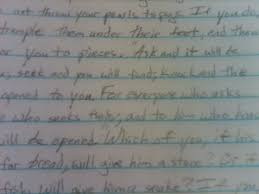 not throw your pearls to pigs. If you do,
trample them under their feet, and then
or you to pieces. "Ask and it will be
, seek and you will find; knock and the
opened to you. For everyone who asks
he who seeks finds; and to him who knoc
will be opened. "Which of you, if his
for bread, will give him a stone? Or if
fish, will give him a snake? If you